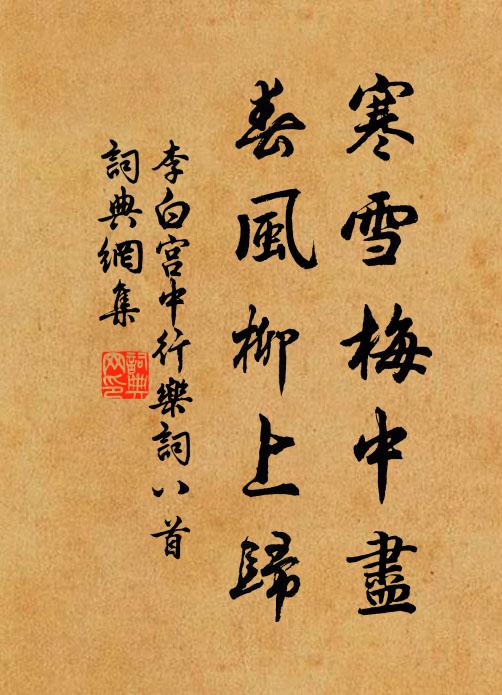 寒雪梅中盡
春風柳上歸
李白宮中行樂詞八首
詞典網集
詞典網印